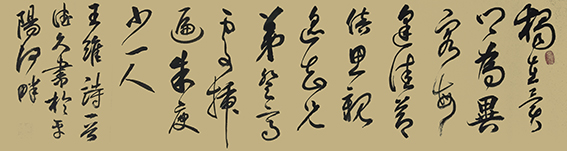 獨在異
鄉為異
客每
逢佳節
倍思親
遙知兄
弟登高
處插
遍茱萸
少一人
王維詩一首
久書於平
陽河畔